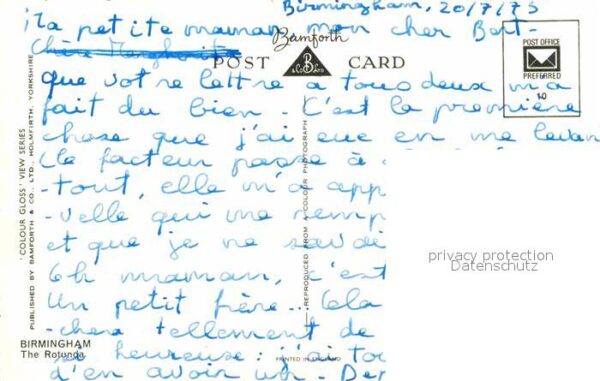 Birmingham, 20/7/73
Ma petite maman mon cher Bert-
Bamforth
POST CARD
POST OFFICE
PREFERRED
Chère
que votre lettre à tous deux m'a
fait du bien. C'est la première
chose que j'ai eue en me levan
(le facteur passe à
-tout, elle m'a app
-velle qui me remp
et que je ne savai
Oh maman, c'est
Un petit frère... Cela
-chera tellement de
si heureuse: j'ai tou
d'en avoir un. Der
'COLOUR GLOSS' VIEW SERIES
PUBLISHED BY BAMFORTH & CO., LTD., HOLMFIRTH, YORKSHIRE
REPRODUCED FROM A COLOUR PHOTOGRAPH
privacy protection
Datenschutz
BIRMINGHAM
The Rotunda
PRINTED IN ENGLAND